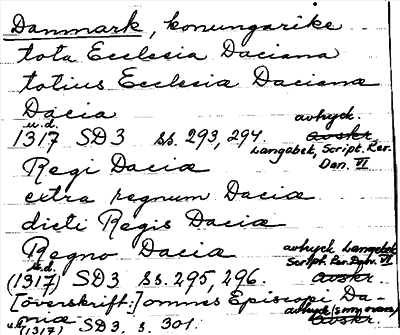 Danmark, konungarike
tota Ecclesia Daciana
totius Ecclesiæ Dacianæ
Dacia
u.d.
1317 SD3 ss. 293, 294. avhyck. avskr.
Langebek, Script. Rer. Dan. VI
Regi Daciæ
citra regnum Daciæ
dicti Regis Daciæ
Regno Daciæ
u.d.
(1317) SD3 ss. 295, 296. avhyck Langebek Script. Rer. Dan. VI avskr.
[överskrift:] omnes Episcopi Da-
niæ avhyck (s myoven) avskr.
u.d. (1317) SD3, s. 301.